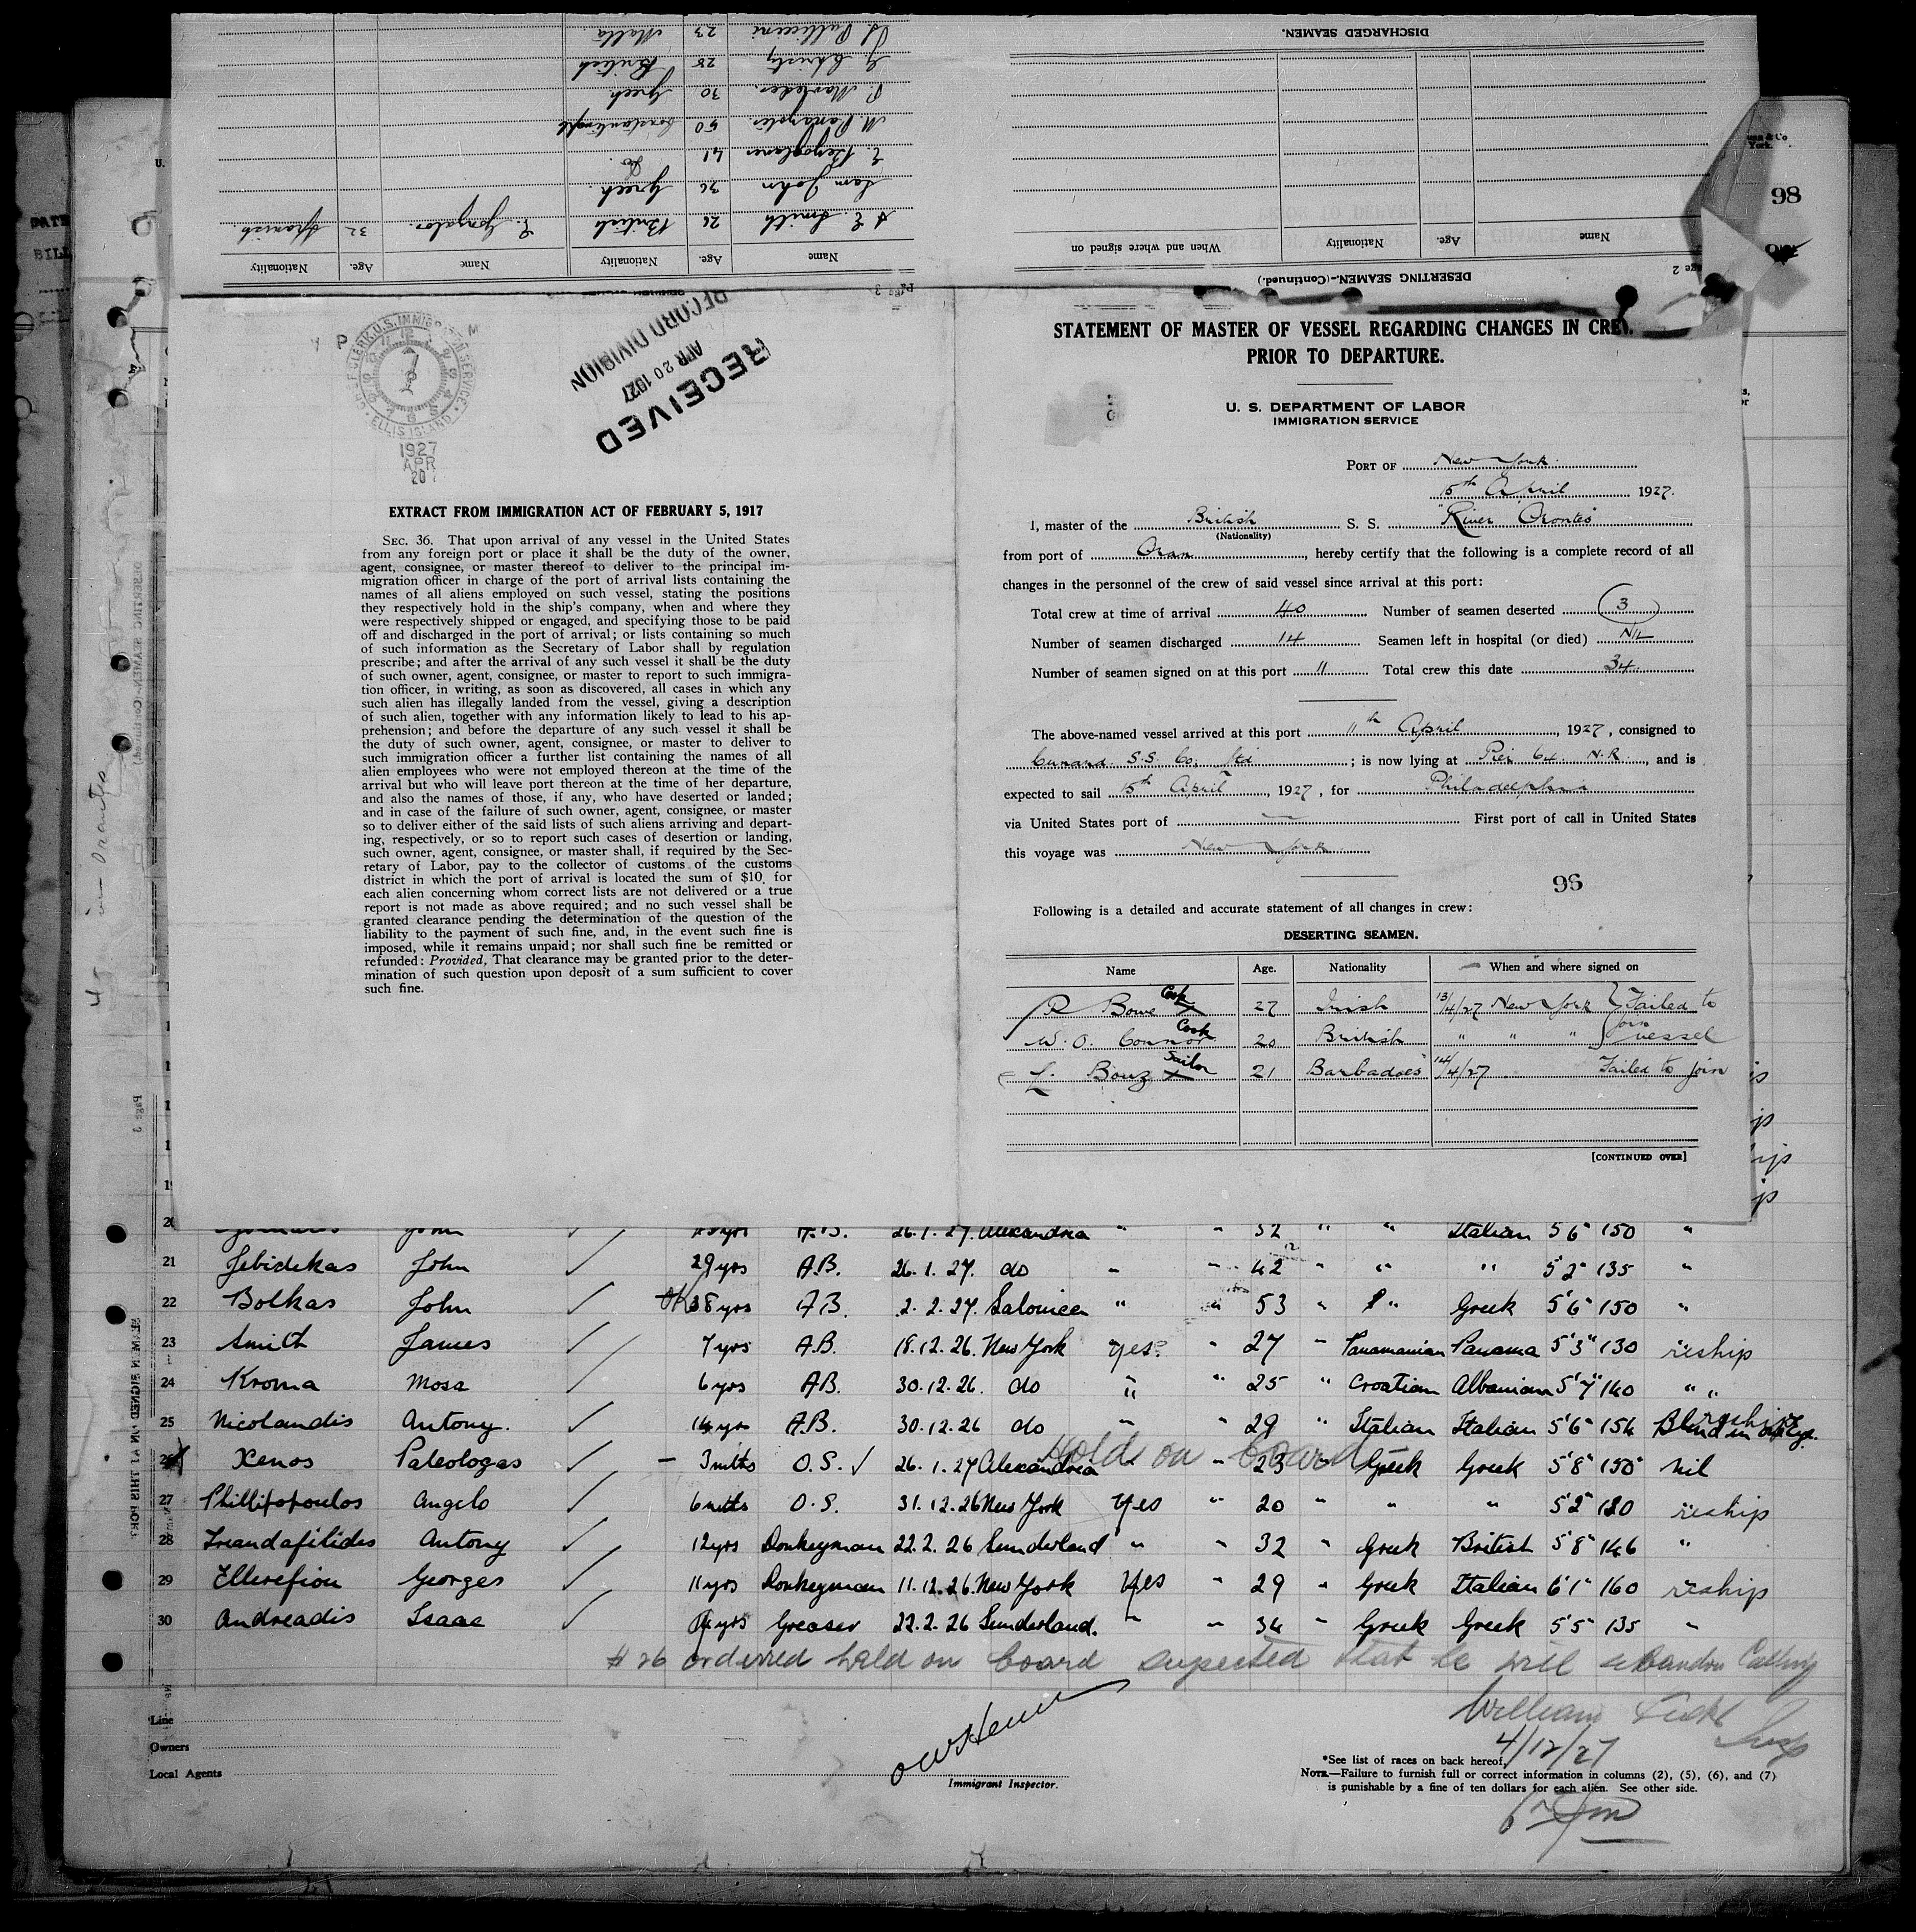 DISCHARGED SEAMEN.
DESERTING SEAMEN.-(Continued.)
Name Age. Nationality When and where signed on
Name Age. Nationality Name Age. Nationality
A E. Smith 26 British E. Gonzalos. 32 Spanish.
Sam John 36 Greek
41 Do.
50 Constantinople
30 Greek
G Christy 28 British
23 Malta
98
CHIEF CLERK, U.S. IMMIGRATION SERVICE
ELLIS ISLAND
1927
APR
20
RECEIVED
APR 20 1927
RECORD DIVISION
EXTRACT FROM IMMIGRATION ACT OF FEBRUARY 5, 1917
SEC. 36. That upon arrival of any vessel in the United States
from any foreign port or place it shall be the duty of the owner,
agent, consignee, or master thereof to deliver to the principal im-
migration officer in charge of the port of arrival lists containing the
names of all aliens employed on such vessel, stating the positions
they respectively hold in the ship's company, when and where they
were respectively shipped or engaged, and specifying those to be paid
off and discharged in the port of arrival; or lists containing so much
of such information as the Secretary of Labor shall by regulation
prescribe; and after the arrival of any such vessel it shall be the duty
of such owner, agent, consignee, or master to report to such immigra-
tion officer, in writing, as soon as discovered, all cases in which any
such alien has illegally landed from the vessel, giving a description
of such alien, together with any information likely to lead to his ap-
prehension; and before the departure of any such vessel it shall be
the duty of such owner, agent, consignee, or master to deliver to
such immigration officer a further list containing the names of all
alien employees who were not employed thereon at the time of the
arrival but who will leave port thereon at the time of her departure,
and also the names of those, if any, who have deserted or landed;
and in case of the failure of such owner, agent, consignee, or master
so to deliver either of the said lists of such aliens arriving and depart-
ing, respectively, or so to report such cases of desertion or landing,
such owner, agent, consignee, or master shall, if required by the Sec-
retary of Labor, pay to the collector of customs of the customs
district in which the port of arrival is located the sum of $10 for
each alien concerning whom correct lists are not delivered or a true
report is not made as above required; and no such vessel shall be
granted clearance pending the determination of the question of the
liability to the payment of such fine, and, in the event such fine is
imposed, while it remains unpaid; nor shall such fine be remitted or
refunded: Provided, That clearance may be granted prior to the deter-
mination of such question upon deposit of a sum sufficient to cover
such fine.
STATEMENT OF MASTER OF VESSEL REGARDING CHANGES IN CREW
PRIOR TO DEPARTURE.
U. S. DEPARTMENT OF LABOR
IMMIGRATION SERVICE
PORT OF New York
15th April 1927.
I, master of the British S. S. "River Orontes"
(Nationality)
from port of Oran, hereby certify that the following is a complete record of all
changes in the personnel of the crew of said vessel since arrival at this port:
Total crew at time of arrival 40 Number of seamen deserted 3
Number of seamen discharged 14 Seamen left in hospital (or died) Nil
Number of seamen signed on at this port 11 Total crew this date 34
The above-named vessel arrived at this port 11th April, 1927, consigned to
Cunard S.S. Co. Ltd; is now lying at Pier 64. N.R., and is
expected to sail 15th April, 1927, for Philadelphia
via United States port of — First port of call in United States
this voyage was New York
96
Following is a detailed and accurate statement of all changes in crew:
DESERTING SEAMEN.
Name Age. Nationality When and where signed on
R Bowe Cook 27 Irish 13/4/27 New York Failed to
W. O. Connor Cook 20 British " " " join vessel
L. Bouz Sailor 21 Barbadoes 14/4/27 Failed to join
[CONTINUED OVER]
John A.B. 26.1.27. Alexandria " " 32 " " Italian 5'6" 150 "
21 Jebidekas John 29 yrs A.B. 26.1.27. do " " 42 " " " 5'2" 135 "
22 Bolkas John 38 yrs A.B. 2.2.27. Salonica " " 53 " " Greek 5'6" 150 "
23 Smith James 7 yrs A.B. 18.12.26. New York Yes " 27 " Panamanian Panama 5'3" 130 reship
24 Kroma Mosa 6 yrs A.B. 30.12.26. do " " 25 " Croatian Albanian 5'7" 140 " "
25 Nicolandis Antony. 14 yrs A.B. 30.12.26 do " " 29 " Italian Italian 5'6" 154 reship Blind in one eye.
26 Xenos Paleologas 3 mths O.S. 26.1.27 Alexandria Hold on board " 23 Greek Greek 5'8" 150 nil
27 Phillipopoulos Angelo 6 mths O.S. 31.12.26 New York Yes " 20 " " " 5'2" 120 reship
28 Treandafilides Antony 12 yrs Donkeyman 22.2.26 Sunderland " " 32 " Greek British 5'8" 146 "
29 Ellerefion Georges 11 yrs Donkeyman 11.12.26. New York Yes " 29 " Greek Italian 6'1" 160 reship
30 Andreadis Isaac yrs Greaser 22.2.26 Sunderland. " " 34 " Greek Greek 5'5" 135 "
#26 ordered held on board suspected that he will abandon Calling
William Insp
4/12/27
Line
Owners
Local Agents
Immigrant Inspector.
*See list of races on back hereof.
NOTE.—Failure to furnish full or correct information in columns (2), (5), (6), and (7)
is punishable by a fine of ten dollars for each alien. See other side.